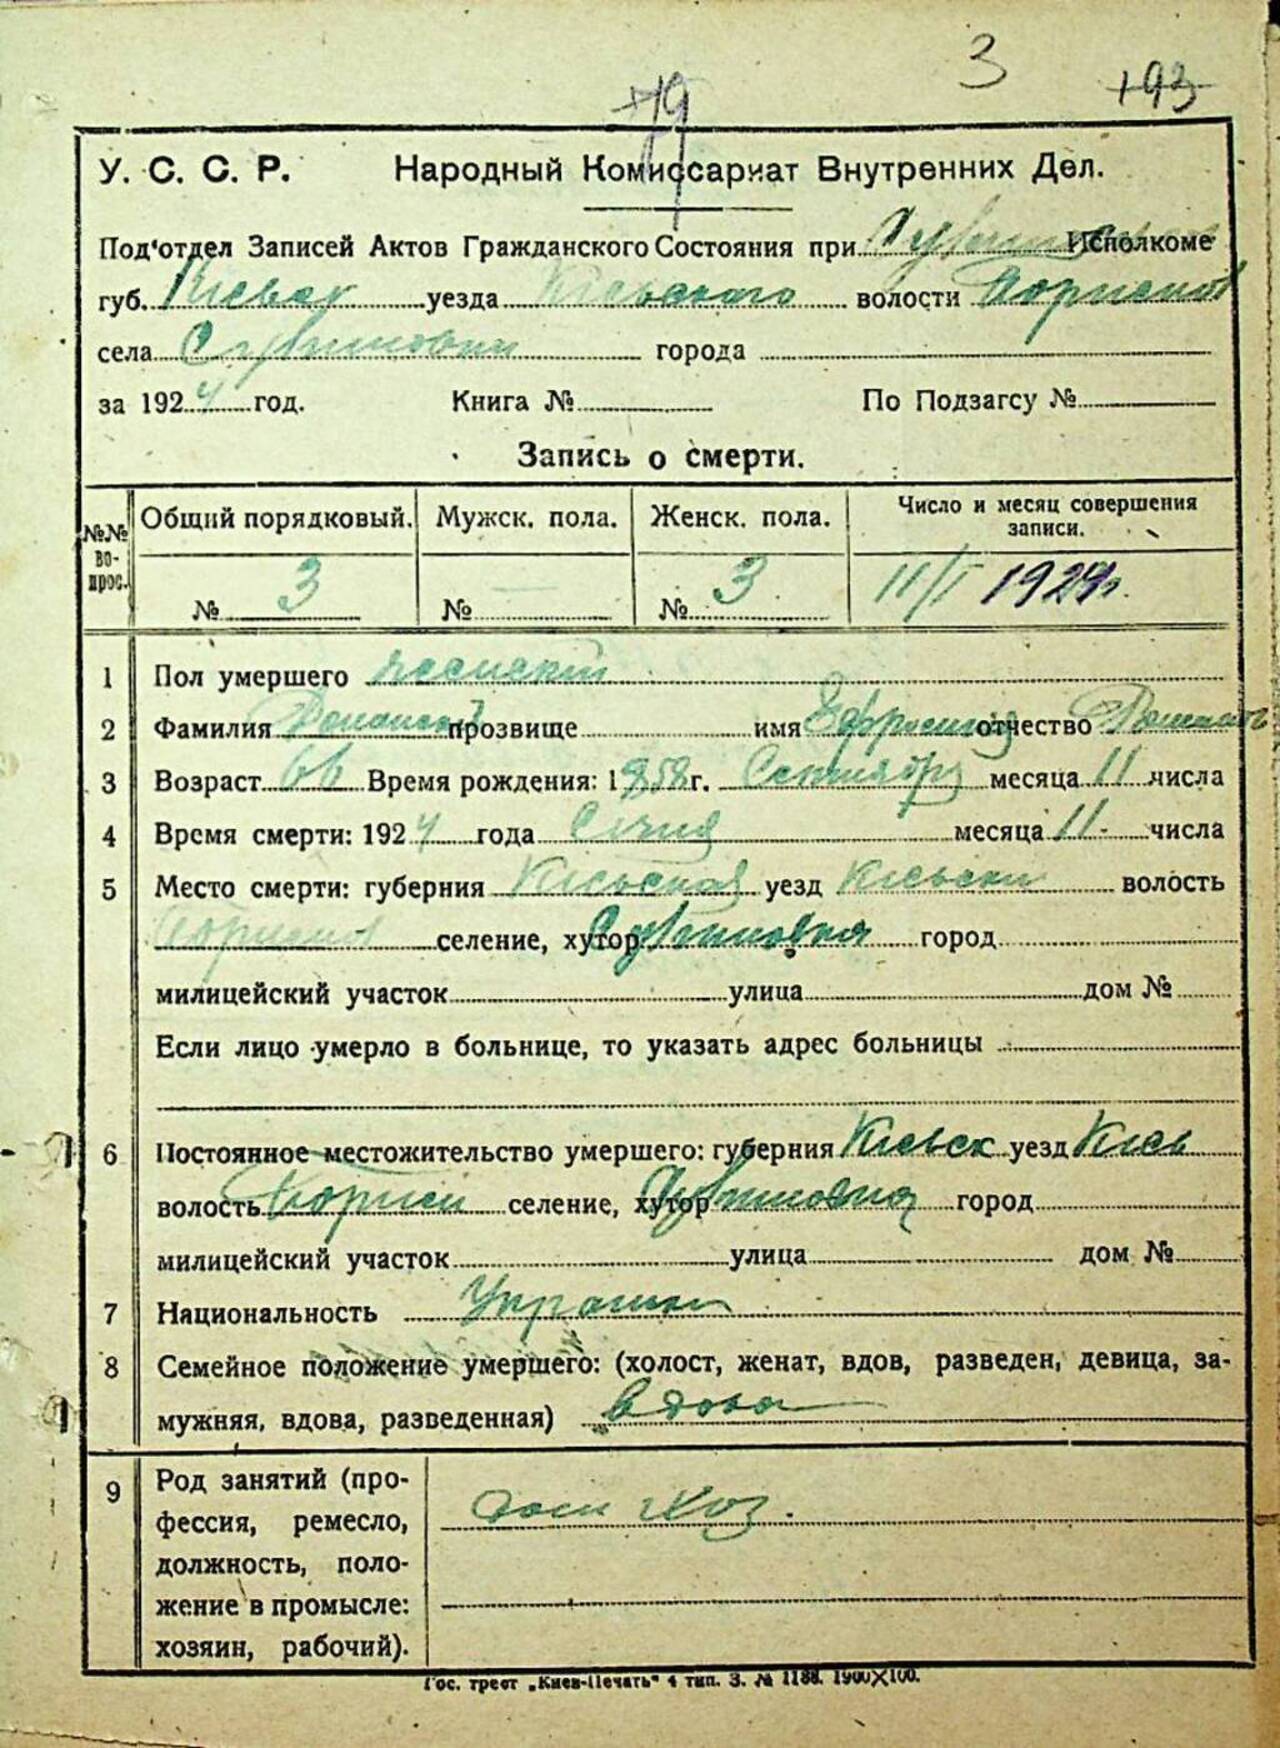 3
+93
79
У. С. С. Р. Народный Комиссариат Внутренних Дел.
Под'отдел Записей Актов Гражданского Состояния при Исполкоме
губ. Кіевск уезда Кіевского волости
села города
за 1924 год. Книга № По Подзагсу №
Запись о смерти.
№№ вопрос. Общий порядковый. Мужск. пола. Женск. пола. Число и месяц совершения записи.
№ 3 № — № 3 11/I 1924 г.
1 Пол умершего женский
2 Фамилия прозвище имя отчество
3 Возраст 66 Время рождения: 1858 г. Сентября месяца 11 числа
4 Время смерти: 1924 года Січня месяца 11 числа
5 Место смерти: губерния Кіевская уезд Кіевски волость
селение, хутор город
милицейский участок улица дом №
Если лицо умерло в больнице, то указать адрес больницы
6 Постоянное местожительство умершего: губерния Кіевск уезд Кіев
волость селение, хутор город
милицейский участок улица дом №
7 Национальность
8 Семейное положение умершего: (холост, женат, вдов, разведен, девица, за-
мужняя, вдова, разведенная) вдова
9 Род занятий (про-
фессия, ремесло,
должность, поло-
жение в промысле:
хозяин, рабочий).
дом хоз.
Гос. трест „Киев-Печать" 4 тип. З. № 1188. 1900Х100.